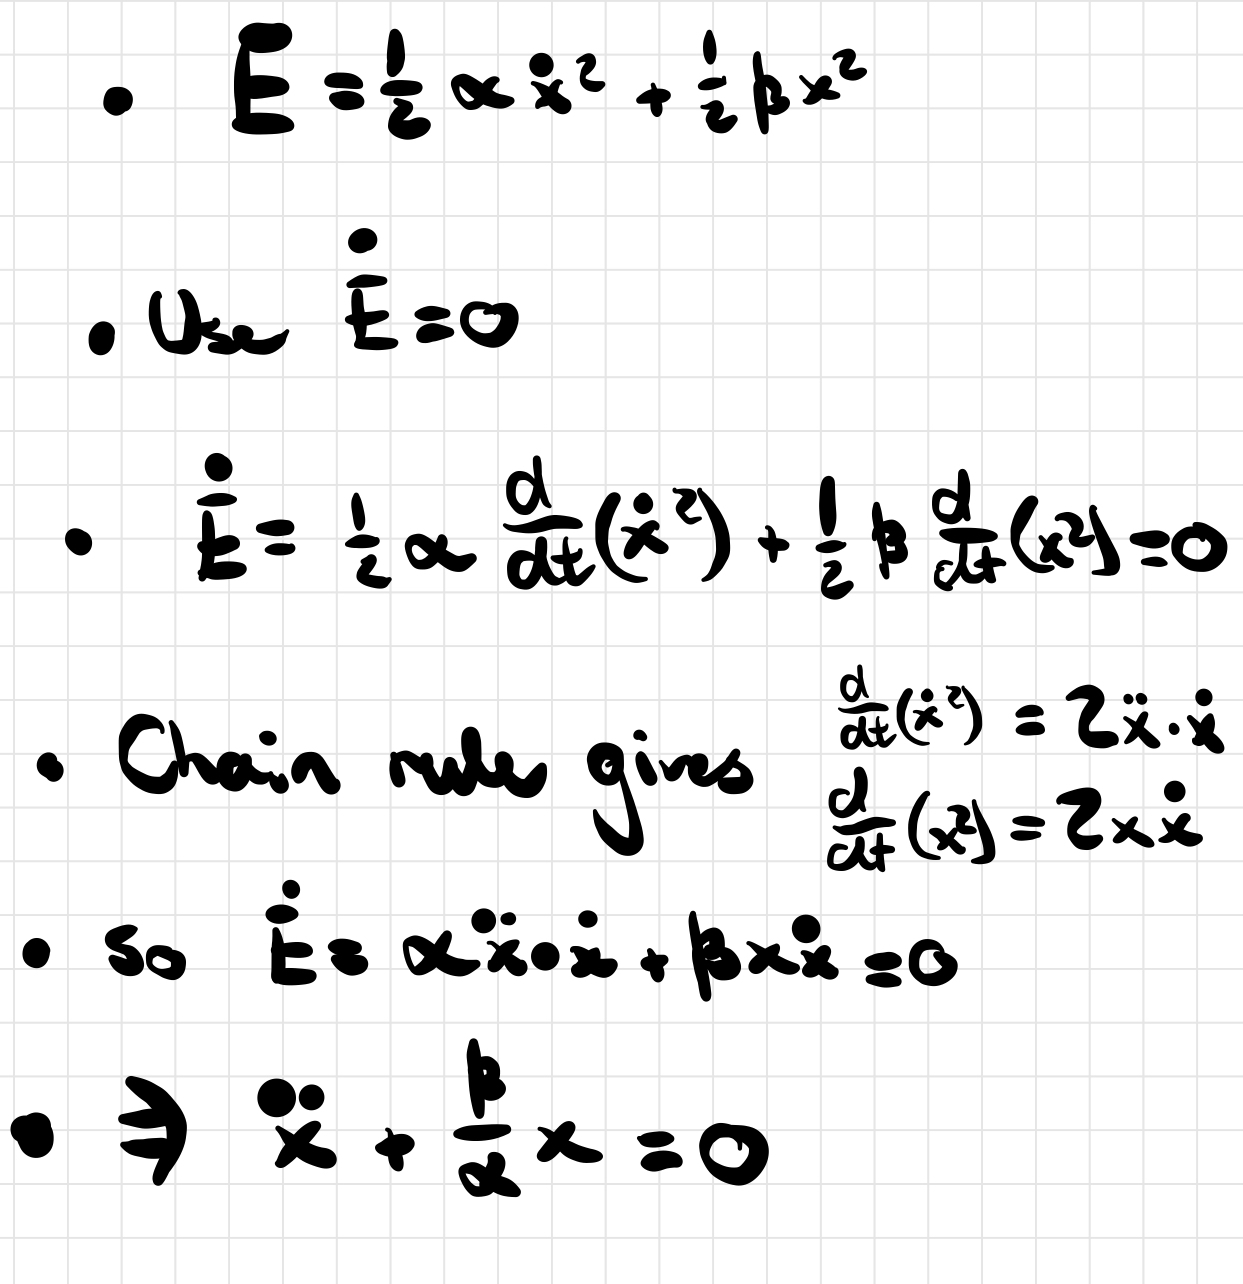 • E = 1/2 α ẋ² + 1/2 β x²
• Use Ė = 0
• Ė = 1/2 α d/dt (ẋ²) + 1/2 β d/dt (x²) = 0
• Chain rule gives d/dt (ẋ²) = 2ẍ·ẋ
d/dt (x²) = 2xẋ
• so Ė = αẍ·ẋ + βxẋ = 0
• ⇒ ẍ + β/α x = 0